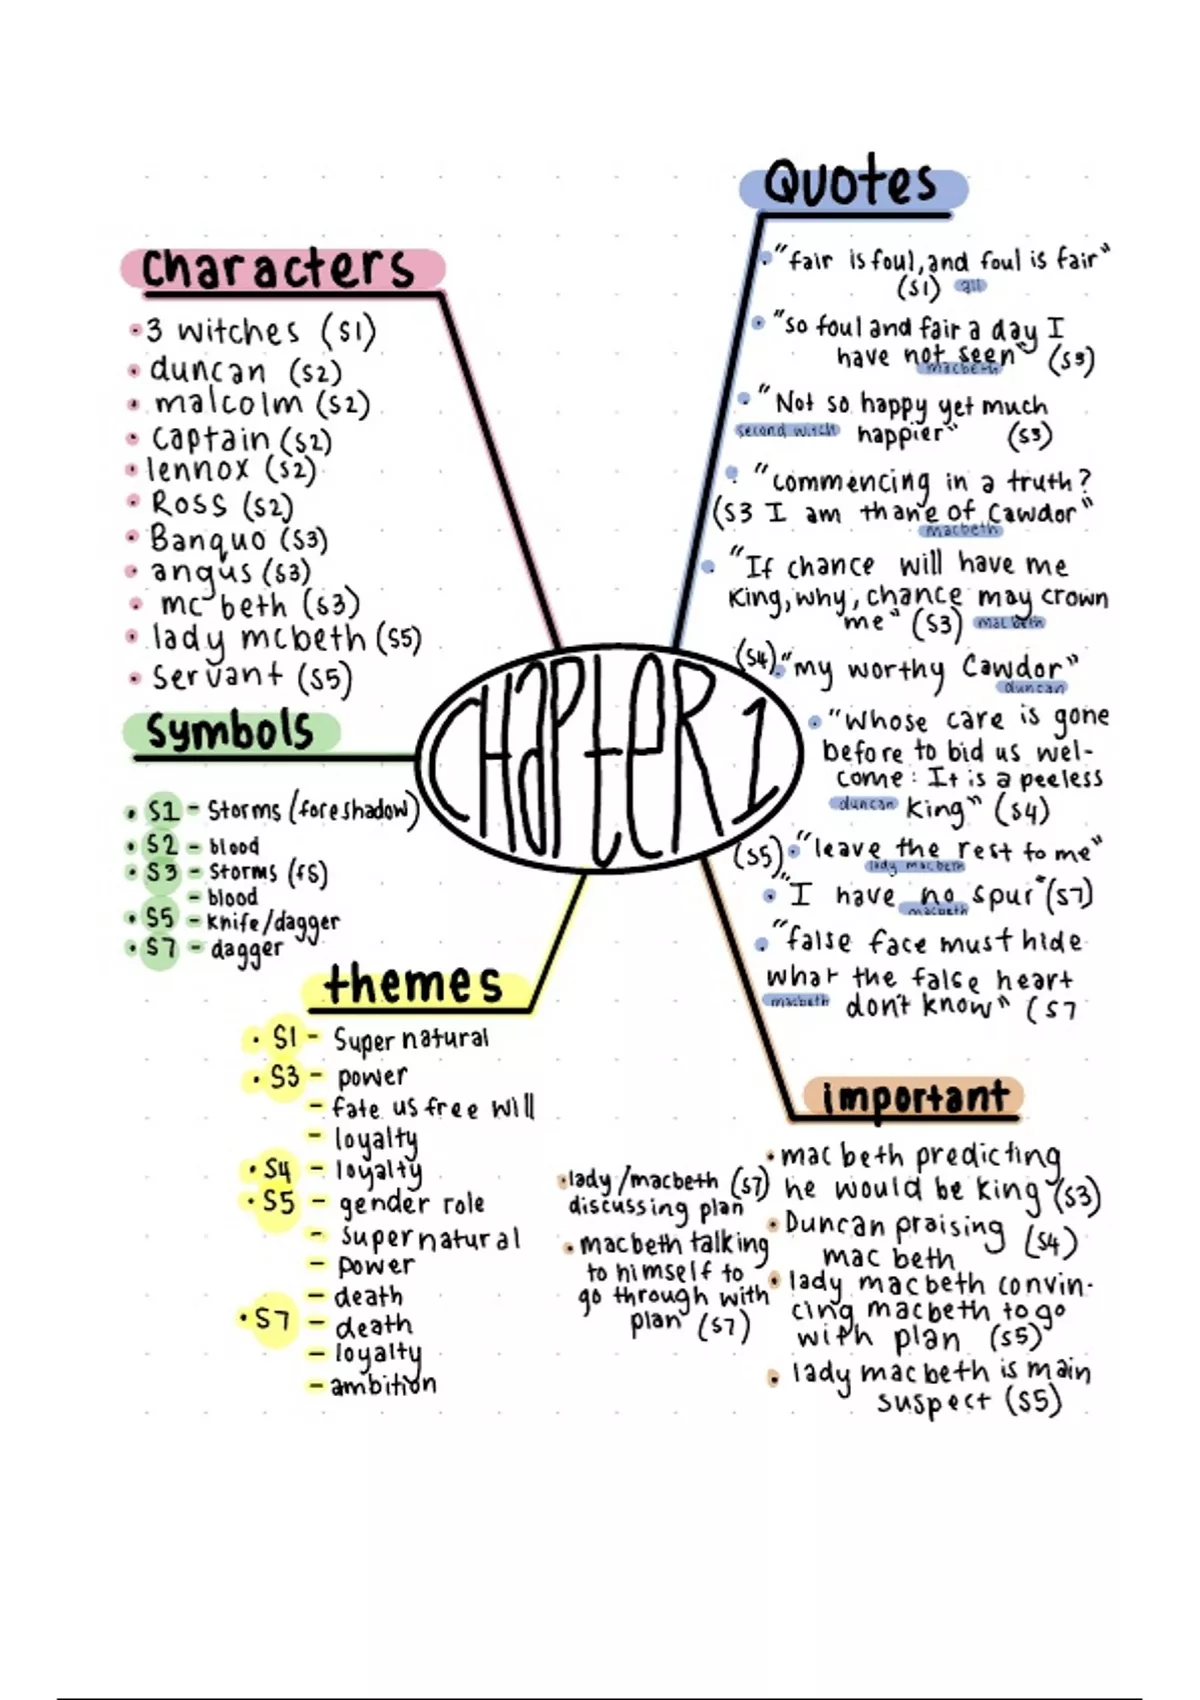 Characters
3 witches (S1)
duncan (S2)
malcolm (S2)
Captain (S2)
lennox (S2)
Ross (S2)
Banquo (S3)
angus (S3)
mc beth (S3)
lady mcbeth (S5)
Servant (S5)
Symbols
S1 - Storms (foreshadow)
S2 - blood
S3 - Storms (fs)
- blood
S5 - Knife/dagger
S7 - dagger
CHaPtER 1
themes
S1 - Super natural
S3 - power
- fate us free will
- loyalty
S4 - loyalty
S5 - gender role
- Supernatural
- Power
- death
S7 - death
- loyalty
- ambition
Quotes
"fair is foul, and foul is fair"
(S1) all
"so foul and fair a day I
have not seen" (S3)
macbeth
"Not so happy yet much
second witch happier" (S3)
"commencing in a truth?
(S3 I am thane of Cawdor"
macbeth
"If chance will have me
King, why, chance may crown
me" (S3) macbeth
(S4) "my worthy Cawdor"
duncan
"Whose care is gone
before to bid us wel-
come: It is a peeless
duncan King" (S4)
(S5) "leave the rest to me"
lady macbeth
"I have no spur" (S7)
macbeth
"false face must hide
what the false heart
macbeth don't know" (S7
important
mac beth predicting
he would be King (S3)
Duncan praising (S4)
mac beth
lady macbeth convin-
cing macbeth to go
with plan (S5)
lady macbeth is main
suspect (S5)
lady/macbeth (S7)
discussing plan
macbeth talking
to himself to
go through with
plan (S7)